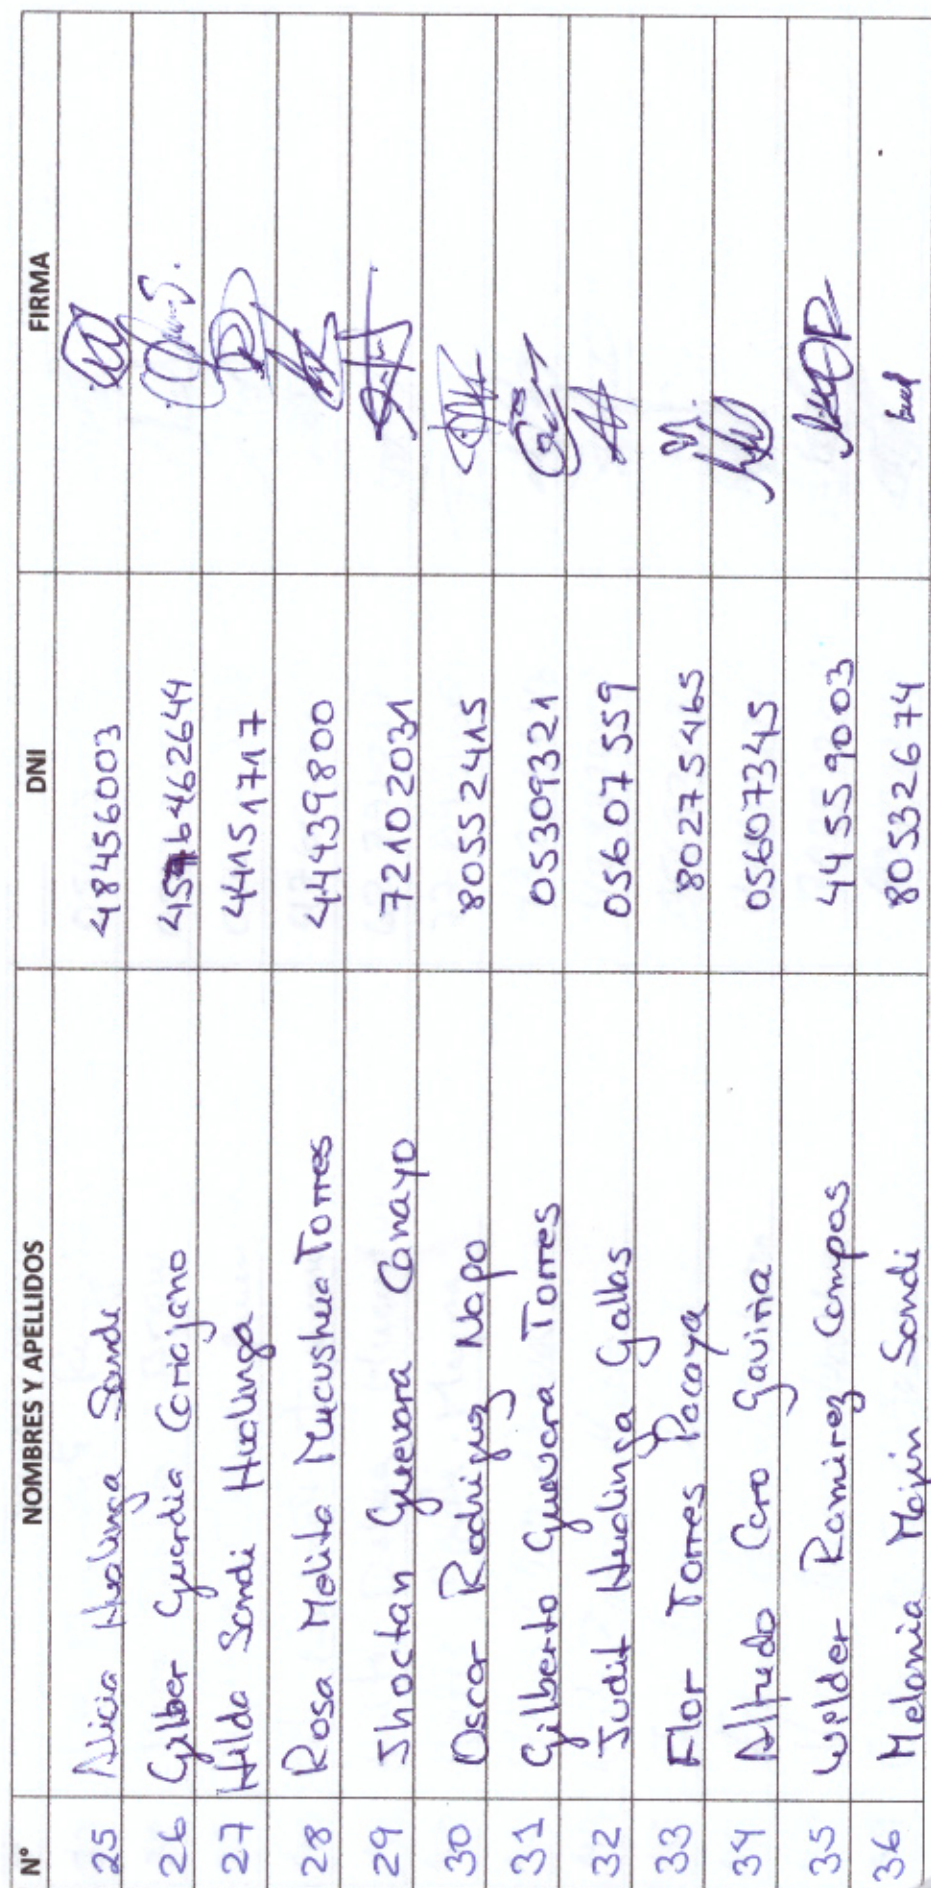 N° NOMBRES Y APELLIDOS DNI FIRMA
25 Alicia Hualinga Sandi 48456003
26 Gilber Guardia Cariajano 45646 2644
27 Hilda Sandi Hualinga 44151717
28 Rosa Melita Mucushua Torres 44439800
29 Jhoctan Guevara Conayo 72102031
30 Oscar Rodriguez Napo 80552415
31 Gilberto Guevara Torres 05309321
32 Judit Hualinga Gallas 05607559
33 Flor Torres Pacaya 80275465
34 Alfredo Caro Gaviria 05607345
35 Wilder Ramirez Campos 44559003
36 Melania Majin Sandi 80532674